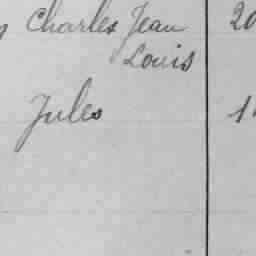 Charles Jean 20
Louis
Jules